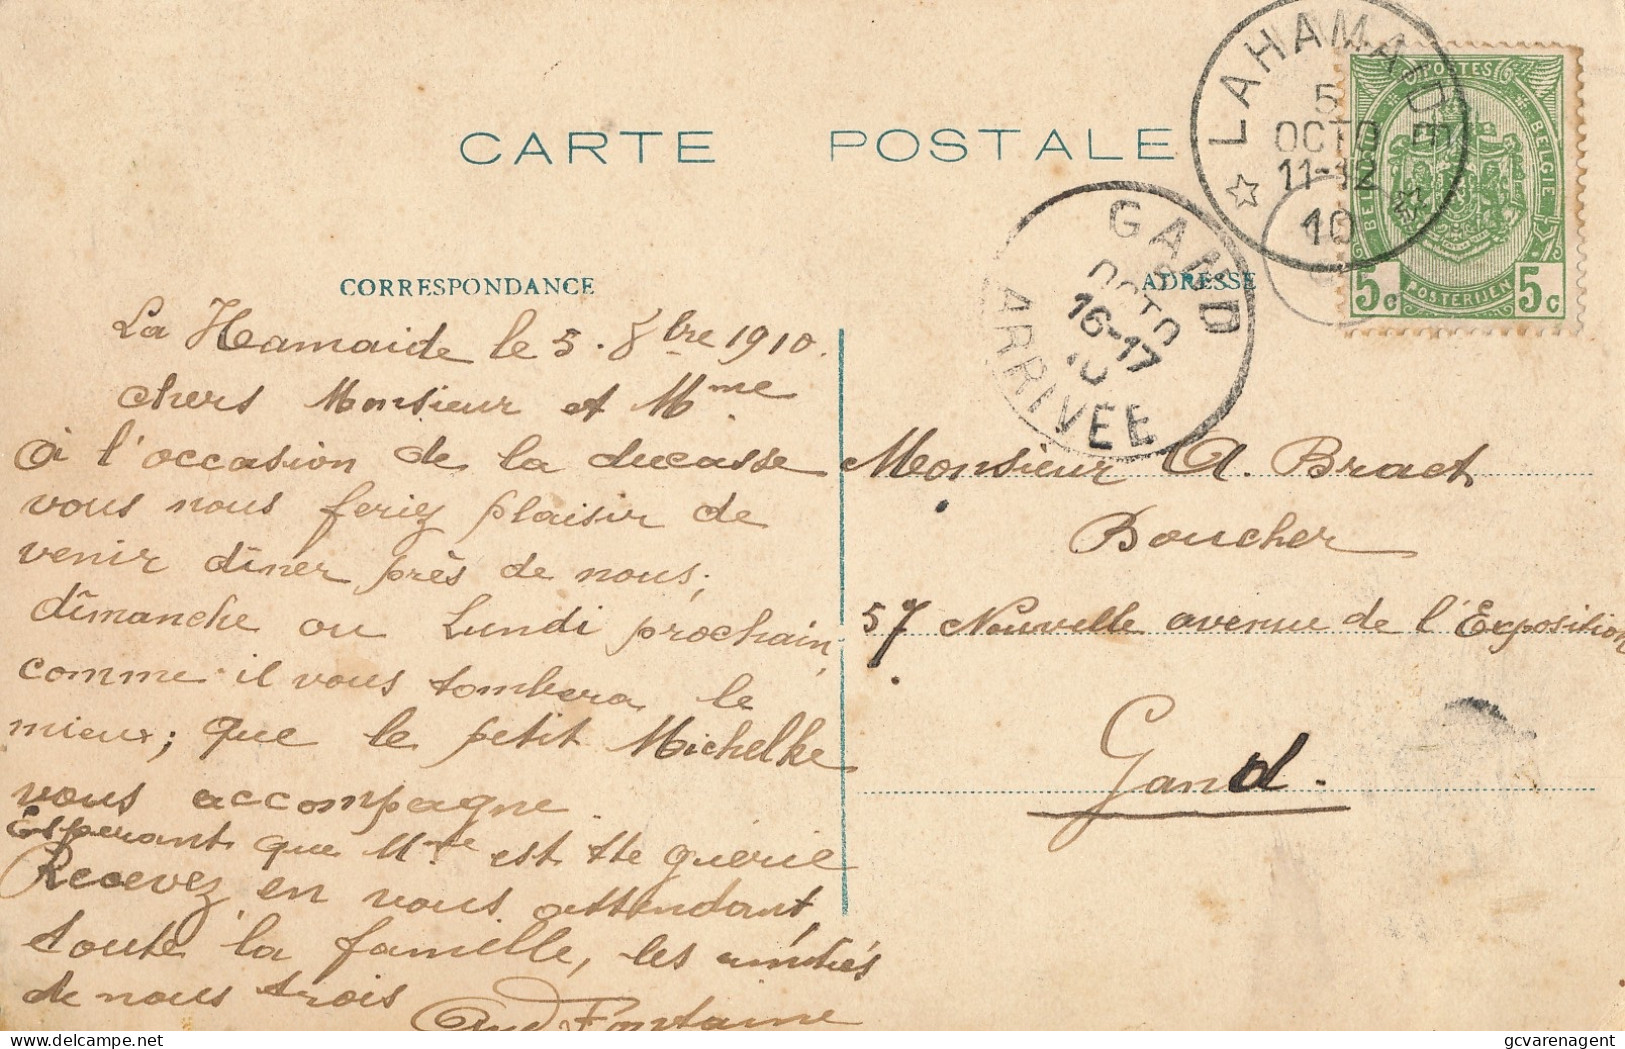 CARTE POSTALE
CORRESPONDANCE
La Hamaide le 5. 8bre 1910.
chers Monsieur et Mme.
à l'occasion de la ducasse
vous nous feriez plaisir de
venir dîner près de nous;
dimanche ou Lundi prochain,
comme il vous tombera le
mieux; que le petit Michelke
vous accompagne.
Esperant que Mme est tte guerie
Recevez en vous attendant,
toute la famille, les amitiés
de nous trois
Fontaine
ADRESSE
Monsieur A. Braet
Boucher
57 Nouvelle avenue de l'Exposition
Gand.
LAHAMAIDE
5
OCTO
11-12
10
GAND
5
OCTO
16-17
10
ARRIVÉE
POSTES
BELGIQUE
BELGIE
POSTERIJEN
5c 5c
gcvarenagent